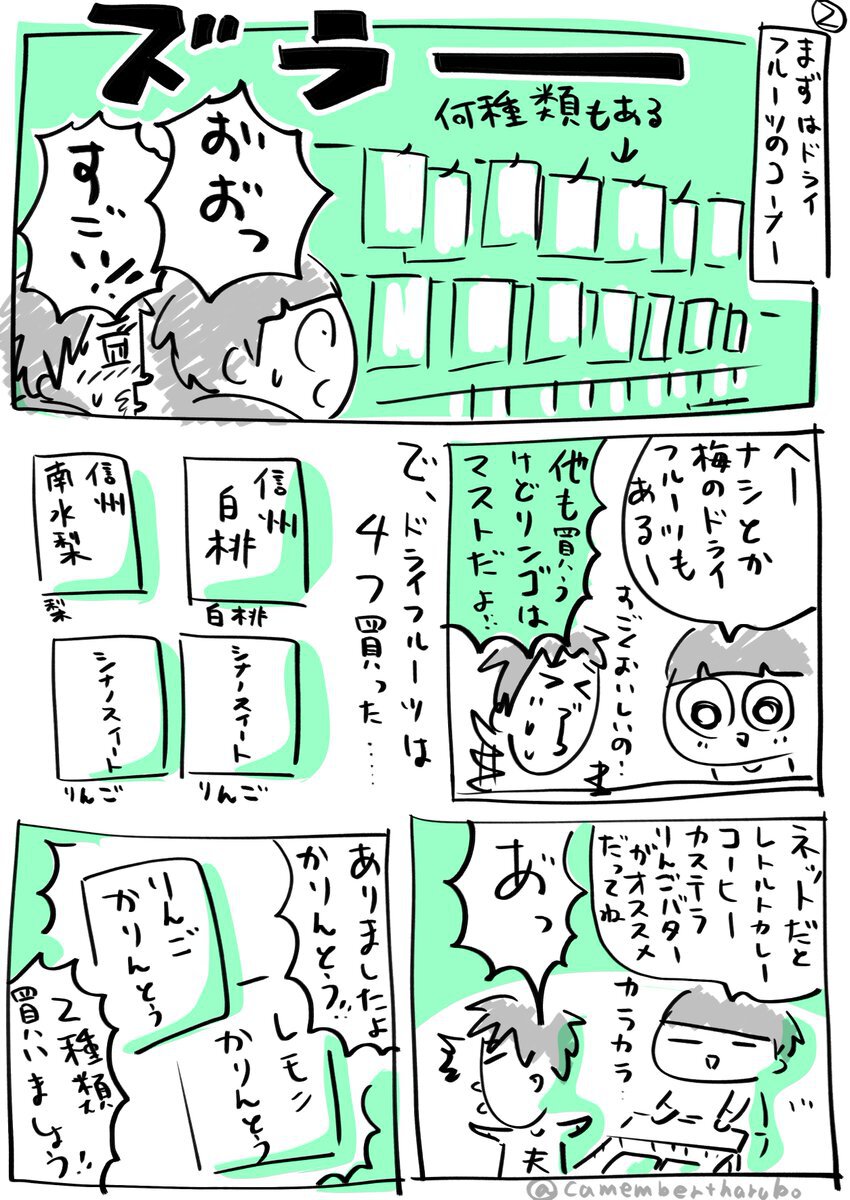 ②
まずはドライ
フルーツのコーナー
ズラー
何種類もある
おおっ
すごい!!
へー
ナシとか
梅のドライ
フルーツも
あるー
すごくおいしいの…
他も買う
けどリンゴは
マストだよ!!
で、ドライフルーツは
4つ買った……
信州
白桃
白桃
信州
南水梨
梨
シナノスイート
りんご
シナノスイート
りんご
ネットだと
レトルトカレー
コーヒー
カステラ
りんごバター
がオススメ
だってね
カラカラ…
あっ
夫
ありましたよ
かりんとう!!
りんご
かりんとう
レモン
かりんとう
2種類
買いましょう!!
@camembertharubo